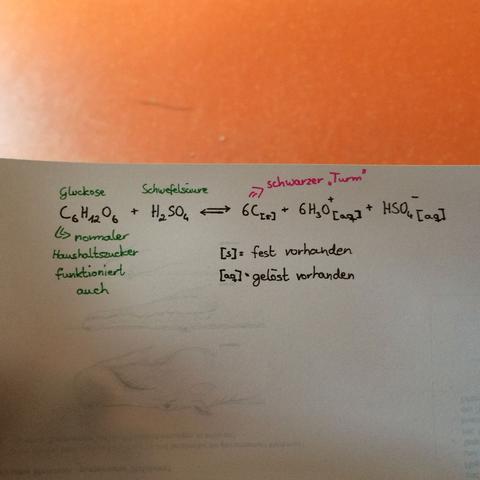 schwarzer „Turm"
Glukose Schwefelsäure
C₆H₁₂O₆ + H₂SO₄ ⇌ 6C[s] + 6H₃O⁺[aq] + HSO₄⁻[aq]
↳ normaler
Haushaltszucker
funktioniert
auch
[s] = fest vorhanden
[aq] = gelöst vorhanden